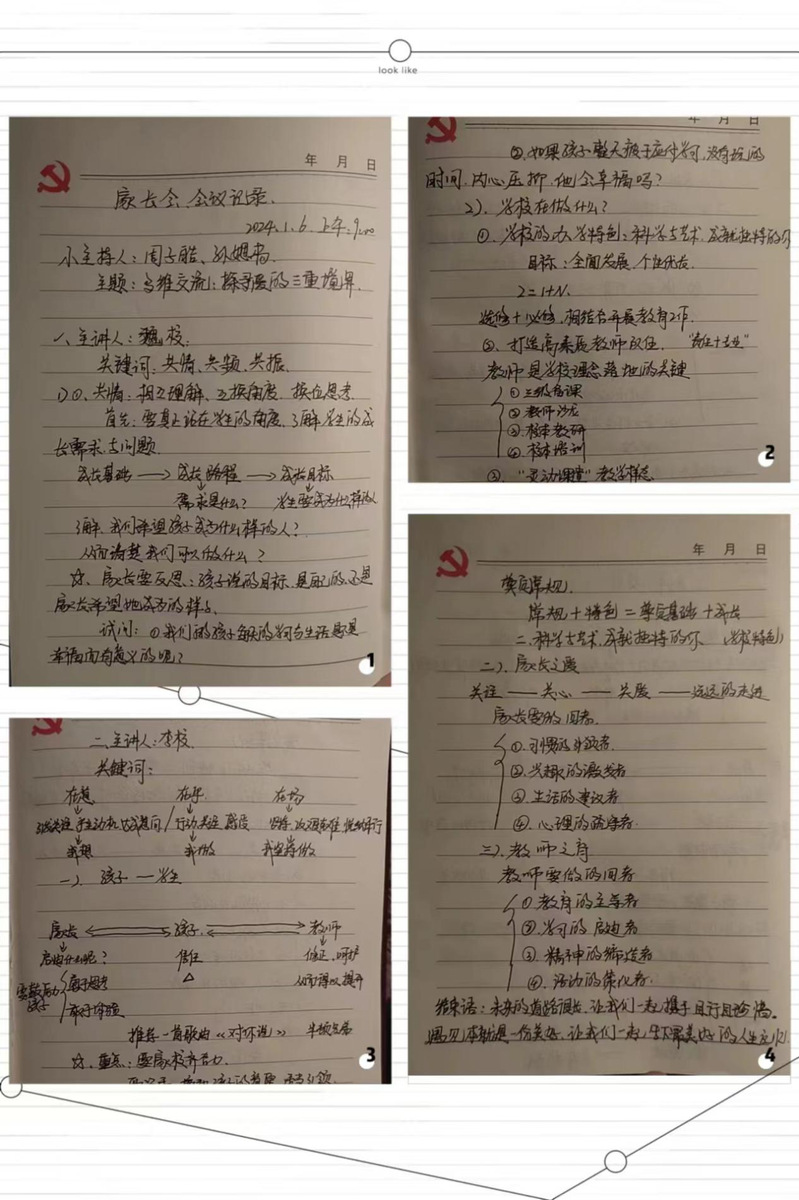 look like
年 月 日
家长会会议记录.
2024.1.6 上午:9:00
小主持人:周子皓、孙
主题:多维交流:探寻爱的三重境界.
一、主讲人:魏校.
关键词:共情、共频、共振.
1)①、共情:相互理解、互换角度、换位思考.
首先:要真正站在学生的角度,了解学生的成
长需求与问题.
成长基础 → 成长路程 → 成长目标
需求是什么? 学生要成为什么样的人
了解我们希望孩子成为什么样的人?
从而清楚我们可以做什么?
☆、家长要反思:孩子说的目标,是自己的,还是
家长希望他成为的样子.
试问:①我们的孩子每天的学习与生活是
幸福而有意义的呢?
1
年 月 日
②.如果孩子整天疲于应付学习,没有玩的
时间,内心压抑,他会幸福吗?
2)、学校在做什么?
①、学校的办学特色:科学与艺术,成就独特的你
目标:全面发展,个性优长.
2=1+N.
选修+必修,相结合开展教育工作.
②、打造高素质教师队伍.
教师是学校理念落地的关键
①三级备课
②教师沙龙
③校本教研
④校本培训
③、“灵动课堂”教学样态
2
二、主讲人:李校.
关键词:
在意 在乎 在场
我想 我做 我坚持做
一)、孩子一学生
家长 孩子 教师
信任
善于思考
推荐一首歌曲《对你说》
☆、重点:要家校齐合力.
3
年 月 日
常规+特色=奠定基础+成长
二、科学与艺术,成就独特的你 (学校特色)
二)、家长之爱
关注——关心——关爱——远远的走进
家长要做的四者.
①.习惯的引领者.
②.兴趣的激发者
③.生活的建议者
④.心理的疏导者.
三)、教师之育
教师要做的四者
①教育的主导者
②.学习的启迪者
③.精神的缔造者
④.活动的策化者.
结束语:未来的道路很长,让我们一起携手且行且珍惜。
遇见本就是一份美好,让我们一起
4